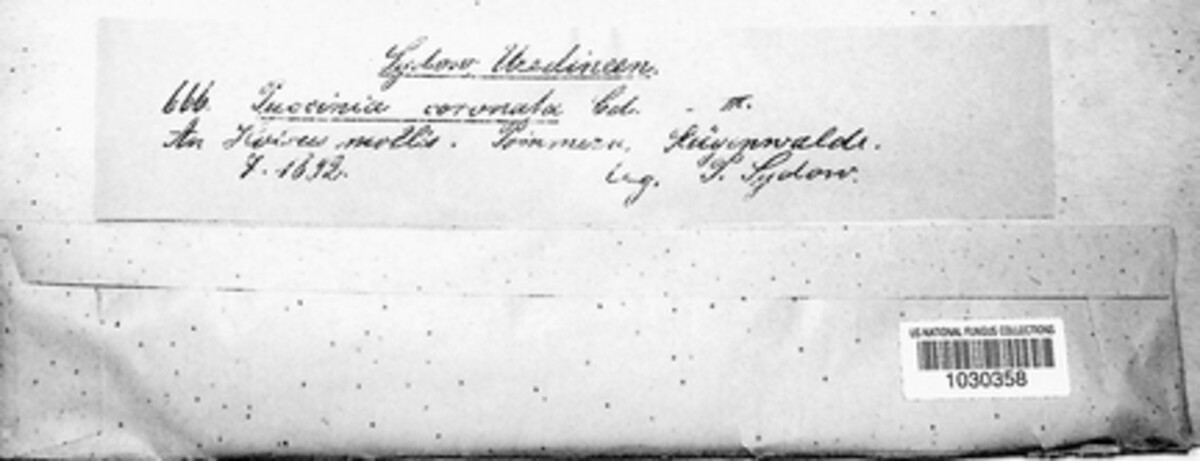 Sydow, Uredineen.
666. Puccinia coronata Cd. - III.
An Holcus mollis. Pommern, Rügenwalde.
7. 1892. leg. P. Sydow.
US NATIONAL FUNGUS COLLECTIONS
1030358